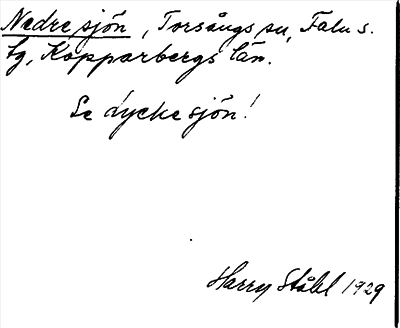 Nedre sjön, Torsångs sn, Falu s.
lg, Kopparbergs län.
Se dyckesjön!
Harry Ståhl 1929